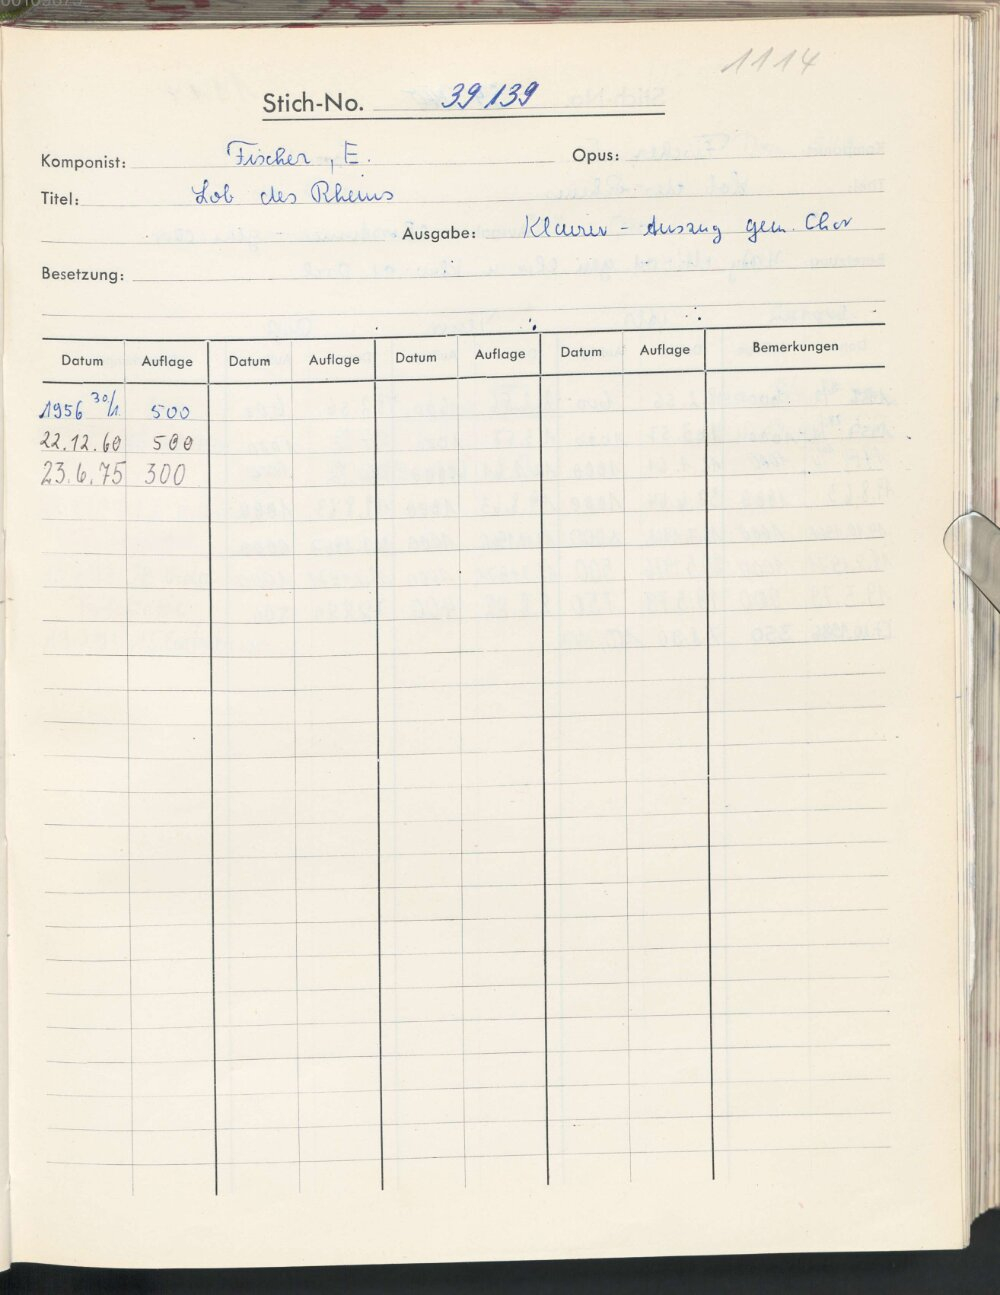 1114
Stich-No. 39139
Komponist: Fischer, E. Opus:
Titel: Lob des Rheins
Ausgabe: Klavier-Auszug gem. Chor
Besetzung:
Datum Auflage Datum Auflage Datum Auflage Datum Auflage Bemerkungen
1956 500
22.12.60 500
23.6.75 300